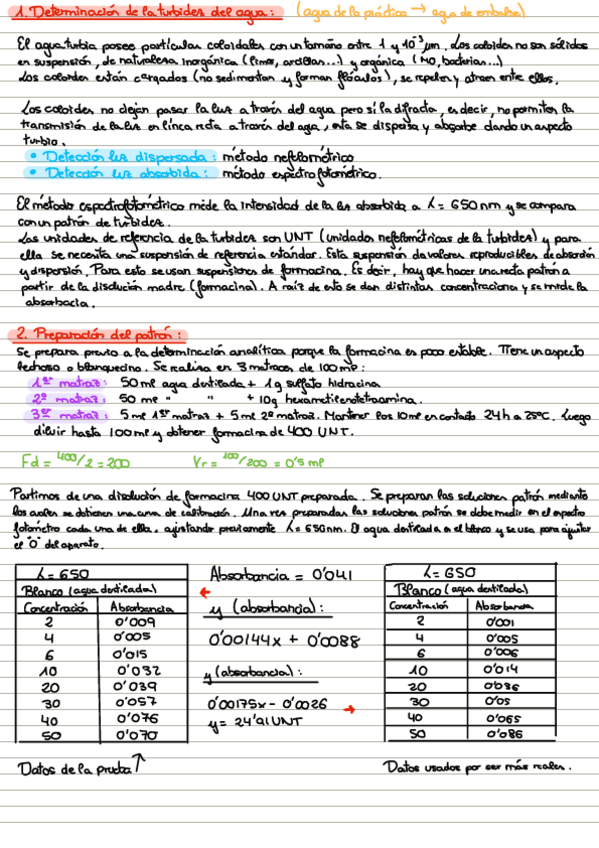 1. Determinación de la turbides del agua: (agua de la práctica → agua de embalse)
El agua turbia posee partículas coloidales con un tamaño entre 1 y 10⁻³ µm. Los coloides no son sólidos
en suspensión, de naturaleza inorgánica (limos, arcillas...) y orgánica (MO, bacterias...)
Los coloides están cargados (no sedimentan y forman flóculos), se repelen y atraen entre ellos.
Los coloides no dejan pasar la luz a través del agua pero sí la difracta, es decir, no permiten la
transmisión de la luz en línea recta a través del agua, esta se dispersa y absorbe dando un aspecto
turbio.
• Detección luz dispersada: método nefelométrico
• Detección luz absorbida: método espectrofotométrico.
El método espectrofotométrico mide la intensidad de la luz absorbida a λ = 650nm y se compara
con un patrón de turbidez.
Las unidades de referencia de la turbidez son UNT (unidades nefelométricas de la turbidez) y para
ella se necesita una suspensión de referencia estándar. Esta suspensión da valores reproducibles de absorción
y dispersión. Para esto se usan suspensiones de formacina. Es decir, hay que hacer una recta patrón a
partir de la disolución madre (formacina). A raíz de esto se dan distintas concentraciones y se mide la
absorbacia.
2. Preparación del patrón:
Se prepara previo a la determinación analítica porque la formacina es poco estable. Tiene un aspecto
lechoso o blanquecino. Se realiza en 3 matraces de 100ml:
1er matraz: 50 ml agua destilada + 1g sulfato hidracina
2º matraz: 50 ml " " + 10g hexametilenotetraamina.
3er matraz: 5 ml 1er matraz + 5 ml 2º matraz. Mantener los 10 ml en contacto 24h a 25ºC. Luego
diluir hasta 100 ml y obtener formacina de 400 UNT.
Fd = 400/2 = 200 Vr = 100/200 = 0'5 ml
Partimos de una disolución de formacina 400 UNT preparada. Se preparan las soluciones patrón mediante
las cuales se obtienen una curva de calibración. Una vez preparadas las soluciones patrón se debe medir en el espectro
fotómetro cada una de ella, ajustando previamente λ = 650nm. El agua destilada es el blanco y se usa para ajustar
el "0" del aparato.
λ = 650
Blanco (agua destilada)
Concentración Absorbancia
2 0'009
4 0'005
6 0'015
10 0'032
20 0'039
30 0'057
40 0'076
50 0'070
Datos de la prueba ↑
Absorbancia = 0'041
←
y (absorbancia):
0'00144x + 0'0088
y (absorbancia):
0'00175x - 0'0026 →
y = 24'91 UNT
λ = 650
Blanco (agua destilada)
Concentración Absorbancia
2 0'001
4 0'005
6 0'006
10 0'014
20 0'036
30 0'05
40 0'065
50 0'086
Datos usados por ser más reales.